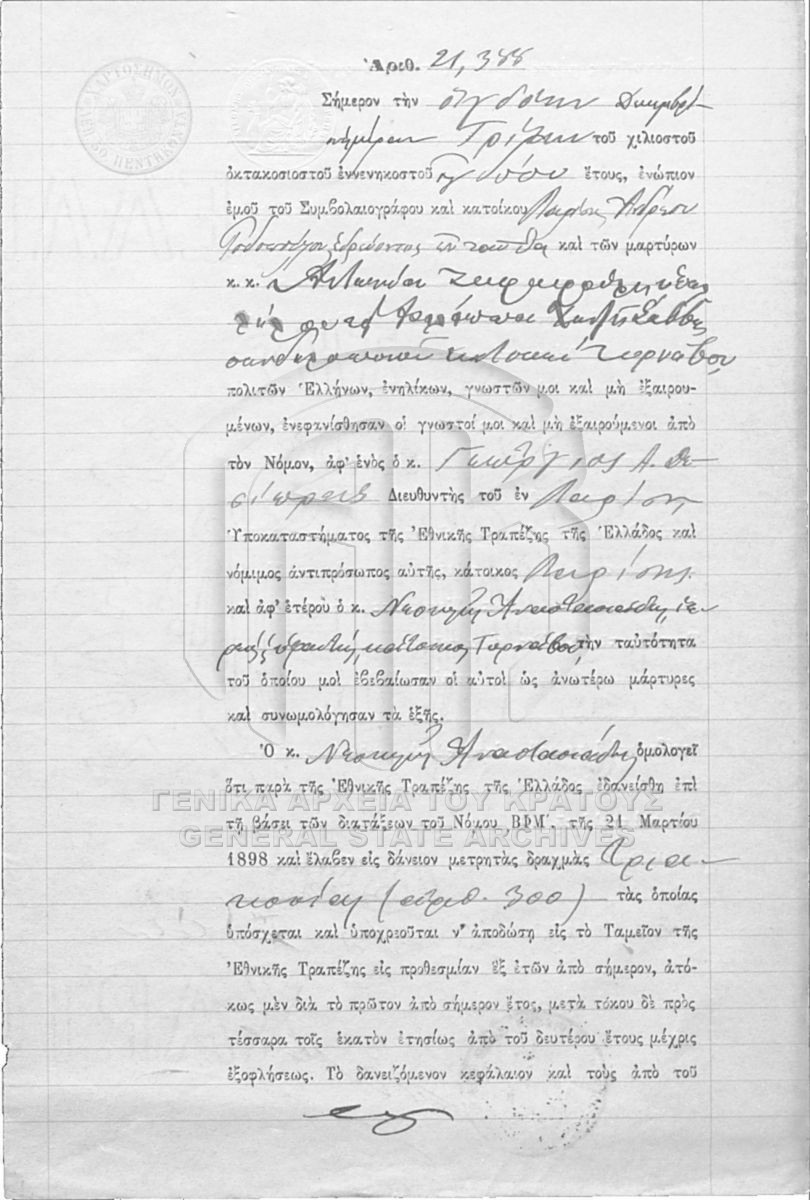 Ἀριθ. 21,388
Σήμερον τὴν ὀγδόην Δεκεμβρί-
ἡμέραν Τρίτην τοῦ χιλιοστοῦ
ὀκτακοσιοστοῦ ἐννενηκοστοῦ ὀγδόου ἔτους, ἐνώπιον
ἐμοῦ τοῦ Συμβολαιογράφου καὶ κατοίκου Λαρίσης Ἀνδρέου
Ροδοπούλου ἑδρεύοντος καὶ τῶν μαρτύρων
κ. κ.
κατοίκων Τυρνάβου
πολιτῶν Ἑλλήνων, ἐνηλίκων, γνωστῶν μοι καὶ μὴ ἐξαιρου-
μένων, ἐνεφανίσθησαν οἱ γνωστοί μοι καὶ μὴ ἐξαιρούμενοι ἀπὸ
τὸν Νόμον, ἀφ' ἑνὸς ὁ κ. Γεώργιος Α.
Διευθυντὴς τοῦ ἐν Λαρίσῃ
Ὑποκαταστήματος τῆς Ἐθνικῆς Τραπέζης τῆς Ἑλλάδος καὶ
νόμιμος ἀντιπρόσωπος αὐτῆς, κάτοικος Λαρίσης
καὶ ἀφ' ἑτέρου ὁ κ. Ἀναστασιάδης
κάτοικος Τυρνάβου, τὴν ταὐτότητα
τοῦ ὁποίου μοὶ ἐβεβαίωσαν οἱ αὐτοὶ ὡς ἀνωτέρω μάρτυρες
καὶ συνωμολόγησαν τὰ ἑξῆς.
Ὁ κ. Ἀναστασιάδης ὁμολογεῖ
ὅτι παρὰ τῆς Ἐθνικῆς Τραπέζης τῆς Ἑλλάδος ἐδανείσθη ἐπὶ
ΓΕΝΙΚΑ ΑΡΧΕΙΑ ΤΟΥ ΚΡΑΤΟΥΣ
τῇ βάσει τῶν διατάξεων τοῦ Νόμου ΒΦΜ΄. τῆς 21 Μαρτίου
GENERAL STATE ARCHIVES
1898 καὶ ἔλαβεν εἰς δάνειον μετρητὰς δραχμὰς Τρια-
κοσίας (ἀριθ. 300) τὰς ὁποίας
ὑπόσχεται καὶ ὑποχρεοῦται ν' ἀποδώσῃ εἰς τὸ Ταμεῖον τῆς
Ἐθνικῆς Τραπέζης εἰς προθεσμίαν ἓξ ἐτῶν ἀπὸ σήμερον, ἀτό-
κως μὲν διὰ τὸ πρῶτον ἀπὸ σήμερον ἔτος, μετὰ τόκου δὲ πρὸς
τέσσαρα τοῖς ἑκατὸν ἐτησίως ἀπὸ τοῦ δευτέρου ἔτους μέχρις
ἐξοφλήσεως. Τὸ δανειζόμενον κεφάλαιον καὶ τοὺς ἀπὸ τοῦ